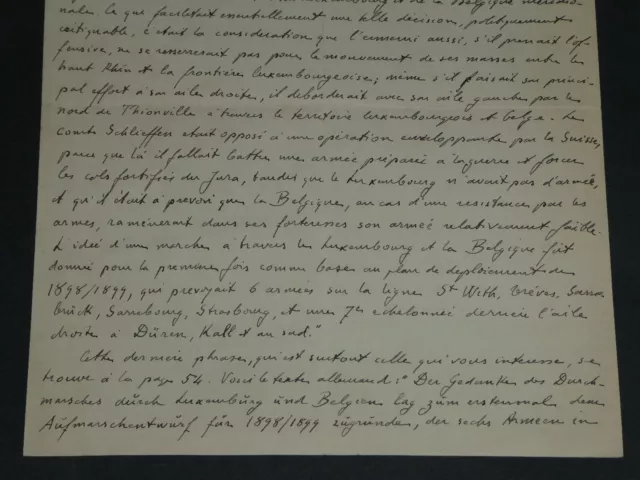 Luxembourg et de la Belgique méridio-
nale. Ce que facilitait essentiellement une telle décision, politiquement
critiquable, c'était la considération que l'ennemi aussi, s'il prenait l'of-
fensive, ne se resserrerait pas pour le mouvement de ses masses entre le
haut Rhin et la frontière luxembourgeoise; même s'il faisait son princi-
pal effort à son aile droite, il déborderait avec son aile gauche par le
nord de Thionville à travers le territoire luxembourgeois et belge. Le
comte Schlieffen était opposé à une opération enveloppante par la Suisse,
parce que là il fallait battre une armée préparée à la guerre et forcer
les cols fortifiés du Jura, tandis que le Luxembourg n'avait pas d'armée,
et qu'il était à prévoir que la Belgique, au cas d'une résistance par les
armes, ramènerait dans ses forteresses son armée relativement faible.
L'idée d'une marche à travers le Luxembourg et la Belgique fut
donnée pour la première fois comme base au plan de déploiement de
1898/1899, qui prévoyait 6 armées sur la ligne St With, Trèves, Sarre-
brück, Sarrebourg, Strasbourg, et une 7e echelonnée derrière l'aile
droite à Düren, Kall et au sud."
Cette dernière phrase, qui est surtout celle qui vous intéresse, se
trouve à la page 54. Voici le texte allemand: "Der Gedanke des Durch-
marsches dŭrch Luxembŭrg ŭnd Belgien lag zŭm erstenmal dem
Aŭfmarschentwŭrf fŭr 1898/1899 zŭgrŭnde, der sechs Armeen in